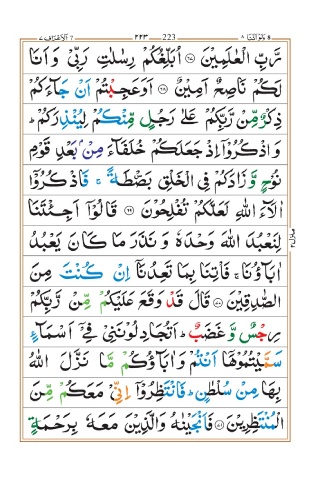 الاعراف ٧ ٢٢٣ 223 ولواننا ٨
رَّبِّ الْعٰلَمِيْنَ ۝٦٧ اُبَلِّغُكُمْ رِسٰلٰتِ رَبِّيْ وَاَنَا
لَكُمْ نَاصِحٌ اَمِيْنٌ ۝٦٨ اَوَعَجِبْتُمْ اَنْ جَآءَكُمْ
ذِكْرٌ مِّنْ رَّبِّكُمْ عَلٰى رَجُلٍ مِّنْكُمْ لِيُنْذِرَكُمْ ؕ
وَاذْكُرُوْۤا اِذْ جَعَلَكُمْ خُلَفَآءَ مِنْۢ بَعْدِ قَوْمِ
نُوْحٍ وَّزَادَكُمْ فِى الْخَلْقِ بَصْۜطَةً ۚ فَاذْكُرُوْۤا
اٰلَآءَ اللّٰهِ لَعَلَّكُمْ تُفْلِحُوْنَ ۝٦٩ قَالُوْۤا اَجِئْتَنَا
لِنَعْبُدَ اللّٰهَ وَحْدَهٗ وَنَذَرَ مَا كَانَ يَعْبُدُ
اٰبَآؤُنَا ۚ فَاْتِنَا بِمَا تَعِدُنَاۤ اِنْ كُنْتَ مِنَ
الصّٰدِقِيْنَ ۝٧٠ قَالَ قَدْ وَقَعَ عَلَيْكُمْ مِّنْ رَّبِّكُمْ
رِجْسٌ وَّغَضَبٌ ؕ اَتُجَادِلُوْنَنِيْ فِيْۤ اَسْمَآءٍ
سَمَّيْتُمُوْهَاۤ اَنْتُمْ وَاٰبَآؤُكُمْ مَّا نَزَّلَ اللّٰهُ
بِهَا مِنْ سُلْطٰنٍ ؕ فَانْتَظِرُوْۤا اِنِّيْ مَعَكُمْ مِّنَ
الْمُنْتَظِرِيْنَ ۝٧١ فَاَنْجَيْنٰهُ وَالَّذِيْنَ مَعَهٗ بِرَحْمَةٍ